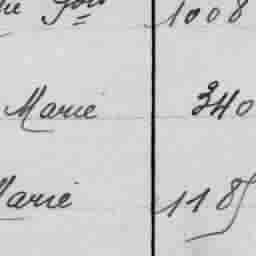 1008
Marie 340
Marie 1185